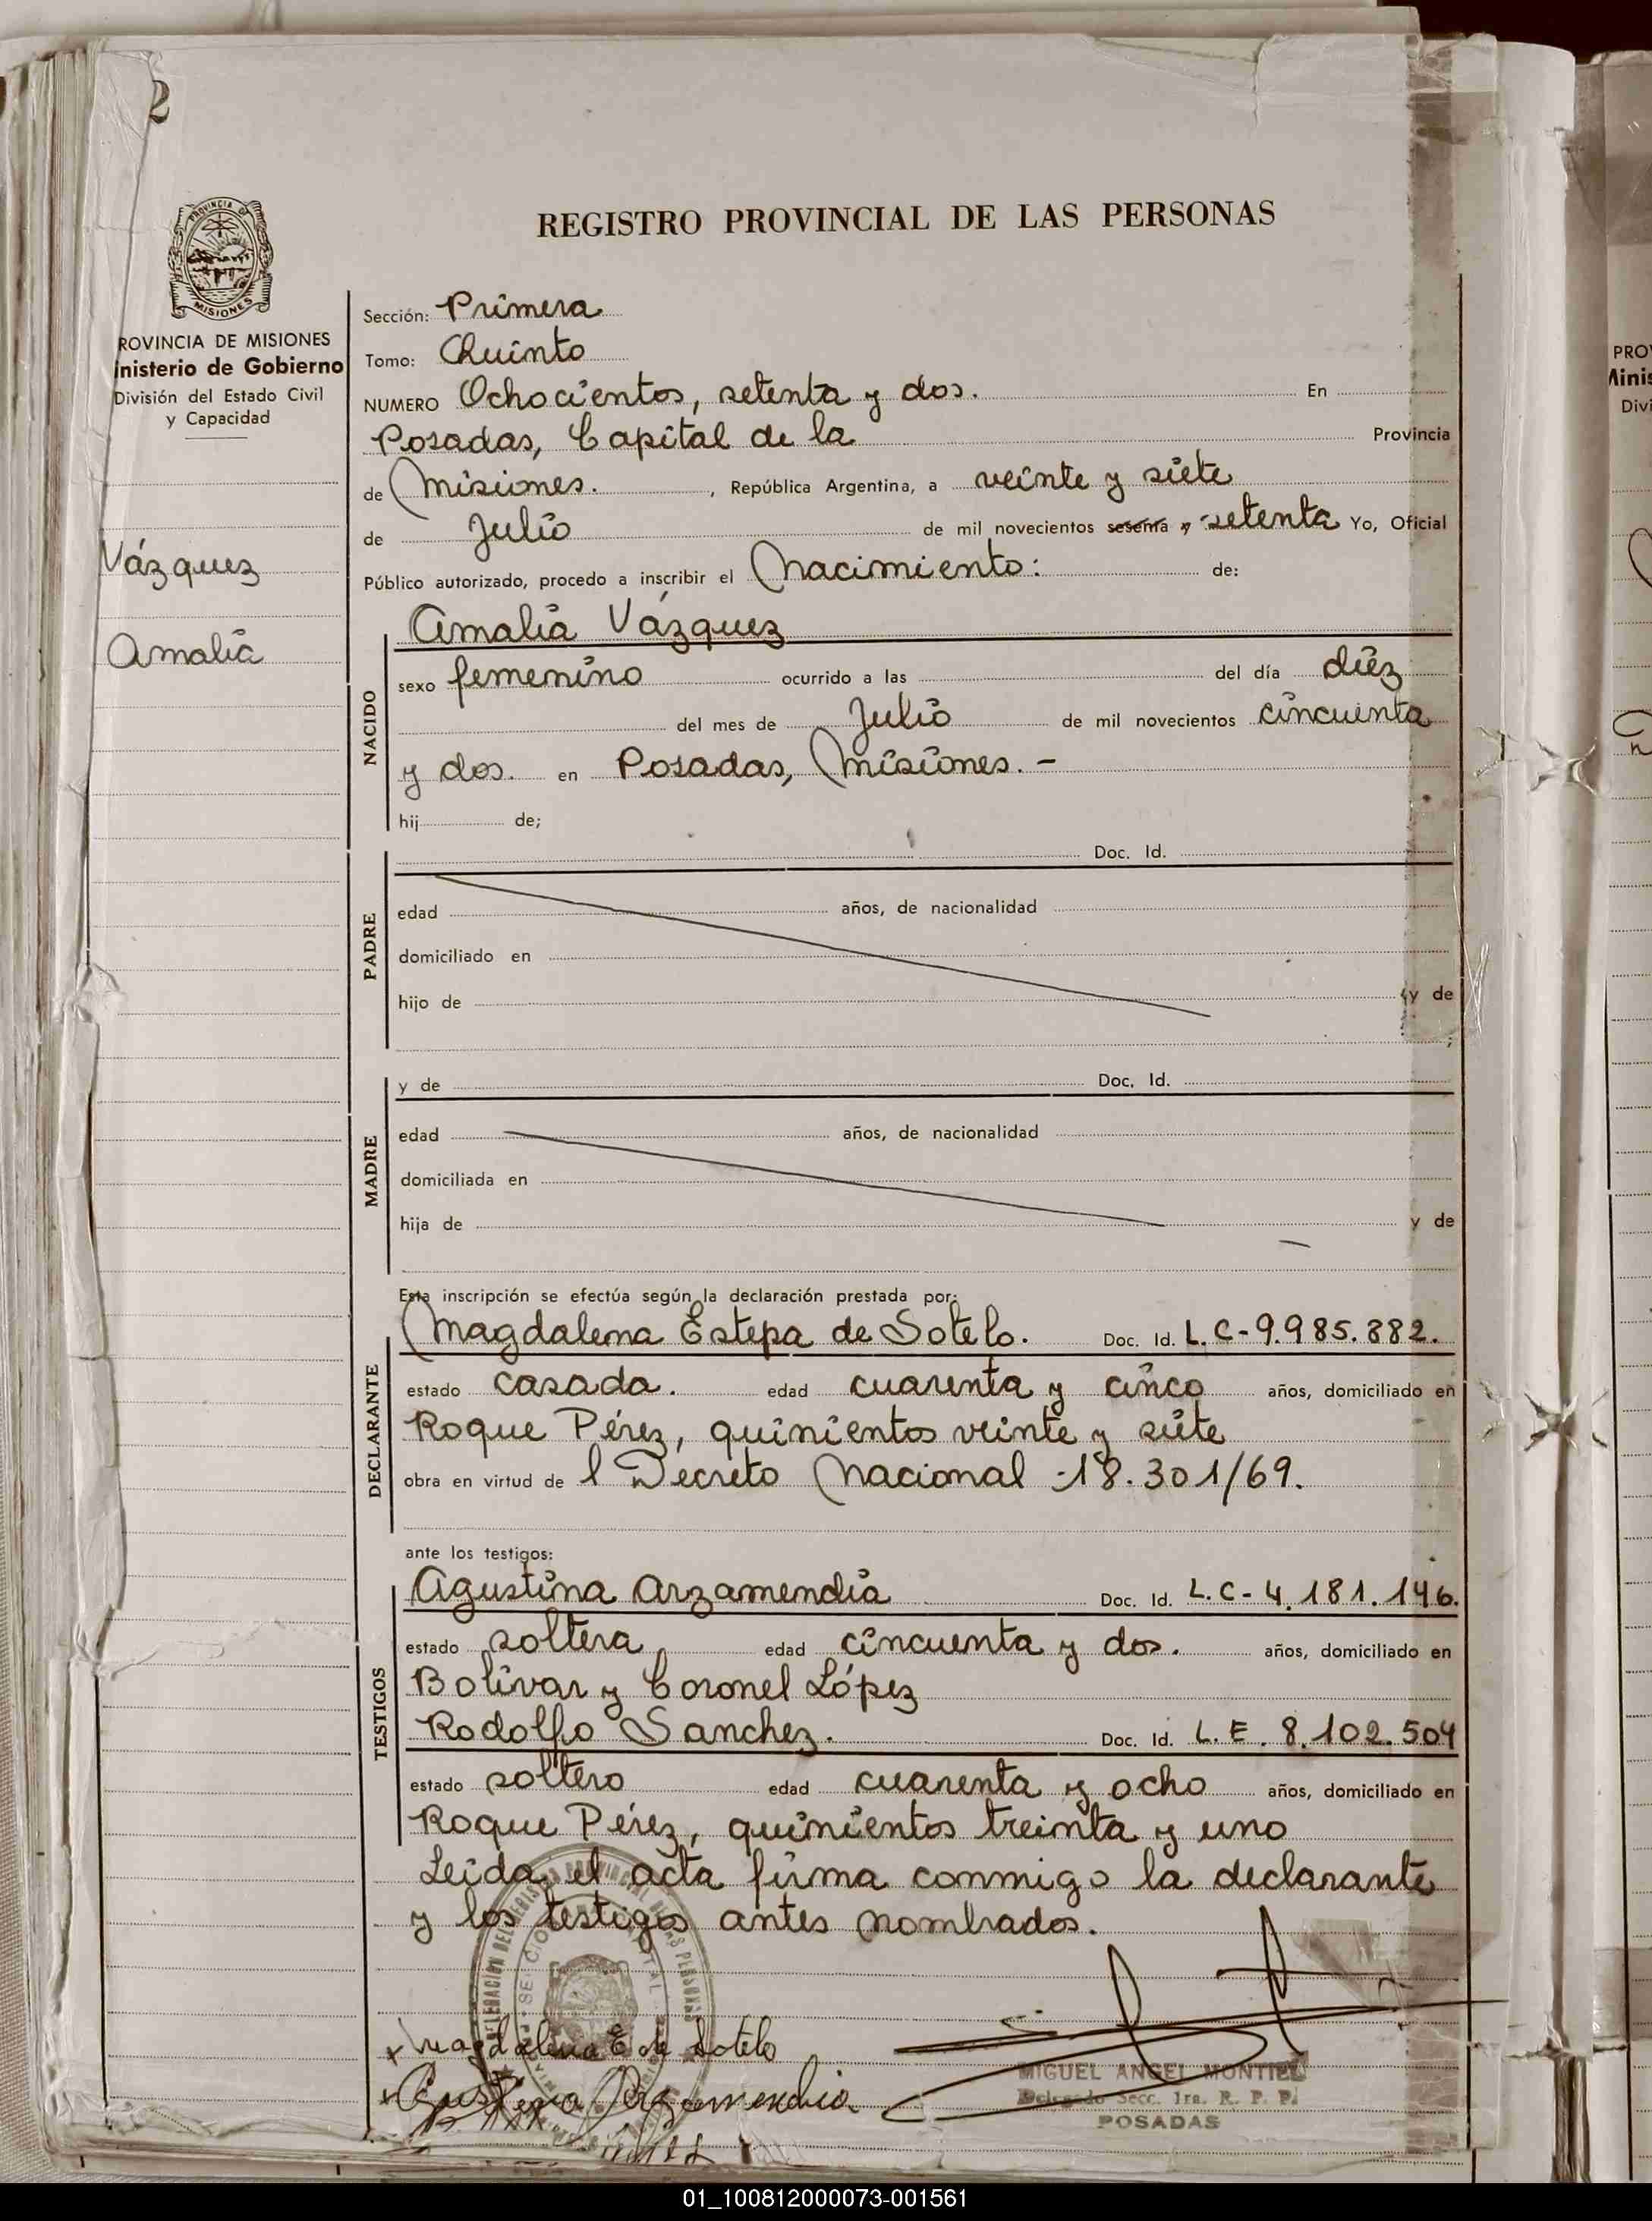 2
REGISTRO PROVINCIAL DE LAS PERSONAS
PROVINCIA DE
MISIONES
ROVINCIA DE MISIONES
inisterio de Gobierno
División del Estado Civil
y Capacidad
Vázquez
Amalia
Sección: Primera
Tomo: Quinto
NUMERO Ochocientos, setenta y dos. En
Posadas, Capital de la Provincia
de Misiones. , República Argentina, a veinte y siete
de Julio de mil novecientos sesenta y setenta Yo, Oficial
Público autorizado, procedo a inscribir el Nacimiento: de:
Amalia Vázquez
NACIDO
sexo femenino ocurrido a las del día diez
del mes de Julio de mil novecientos cincuenta
y dos. en Posadas, Misiones. -
hij de;
Doc. Id.
PADRE
edad años, de nacionalidad
domiciliado en
hijo de y de
;
y de Doc. Id.
MADRE
edad años, de nacionalidad
domiciliada en
hija de y de
Esta inscripción se efectúa según la declaración prestada por:
Magdalena Estepa de Sotelo. Doc. Id. L.C-9.985.882.
DECLARANTE
estado casada. edad cuarenta y cinco años, domiciliado en
Roque Pérez, quinientos veinte y siete
obra en virtud de l Decreto Nacional -18.301/69.
ante los testigos:
Agustina Arzamendia Doc. Id. L.C-4.181.146.
TESTIGOS
estado soltera edad cincuenta y dos. años, domiciliado en
Bolívar y Coronel López
Rodolfo Sanchez. Doc. Id. L.E. 8.102.504
estado soltero edad cuarenta y ocho años, domiciliado en
Roque Pérez, quinientos treinta y uno
Leída el acta firma conmigo la declarante
y los testigos antes nombrados.
x Magdalena E de Sotelo
x Agustina Arzamendia
MIGUEL ANGEL MONTIEL
Delegado Secc. 1ra. R. P. P.
POSADAS
PRO
Minis
Divi
01_100812000073-001561